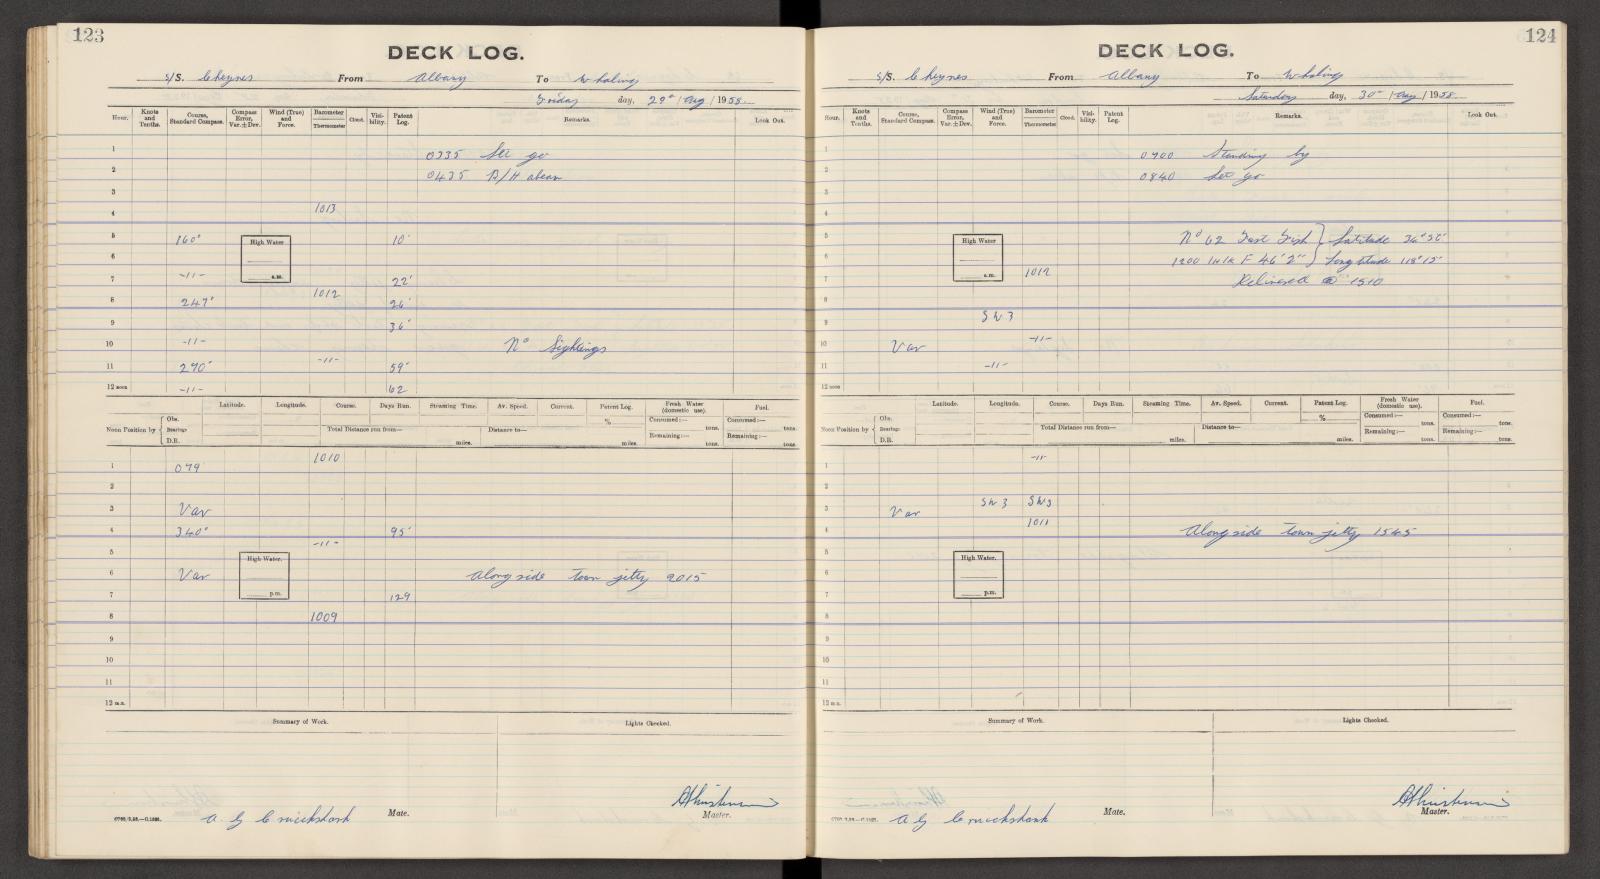 123
DECK LOG.
S/S. Cheynes From Albany To Whaling
Friday day, 29th / Aug / 1958
Hour. Knots and Tenths. Course, Standard Compass. Compass Error, Var. ± Dev. Wind (True) and Force. Barometer Thermometer Cloud. Visibility. Patent Log. Remarks. Look Out.
1 0335 Let go
2 0435 B/H abeam
3
4 1013
5 160° High Water 10'
6
7 -11- a.m. 22'
8 247° 1012 26'
9 36'
10 -11- No Sightings
11 290° -11- 59'
12 noon -11- 62
Latitude. Longitude. Course. Days Run. Steaming Time. Av. Speed. Current. Patent Log. Fresh Water (domestic use). Fuel.
Noon Position by Obs. Bearings D.R. Total Distance run from— miles. Distance to— miles. % Consumed:— tons. Remaining:— tons. Consumed:— tons. Remaining:— tons.
1 079 1010
2
3 Var
4 340° 95'
5 -11- High Water.
6 Var Alongside town jetty 2015
7 p.m. 129
8 1009
9
10
11
12 m.n.
Summary of Work. Lights Checked.
A G Cruickshank Mate. Master.
124
DECK LOG.
S/S. Cheynes From Albany To Whaling
Saturday day, 30th / Aug / 1958
Hour. Knots and Tenths. Course, Standard Compass. Compass Error, Var. ± Dev. Wind (True) and Force. Barometer Thermometer Cloud. Visibility. Patent Log. Remarks. Look Out.
1 Standing by
2 0840 Let go
3
4
5 High Water No 62 Fast Fish } Latitude
6 1200 F 46'2" } Longitude
7 a.m. 1012 Delivered @ 1510
8
9 SW 3
10 Var -11-
11 -11-
12 noon
Latitude. Longitude. Course. Days Run. Steaming Time. Av. Speed. Current. Patent Log. Fresh Water (domestic use). Fuel.
Noon Position by Obs. Bearings D.R. Total Distance run from— miles. Distance to— miles. % Consumed:— tons. Remaining:— tons. Consumed:— tons. Remaining:— tons.
1 -11-
2
3 Var SW 3 SW3
4 1011 Alongside town jetty 1545
5 High Water.
6
7 p.m.
8
9
10
11
12 m.n.
Summary of Work. Lights Checked.
A G Cruickshank Mate. Master.